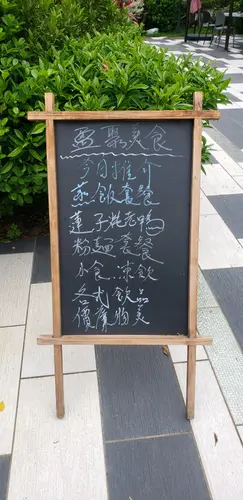 荟聚美食
今日推介
蒸飯套餐
蓮子炖老鴨
粉麵套餐
小食..凍飲
各式飲品
價廉物美